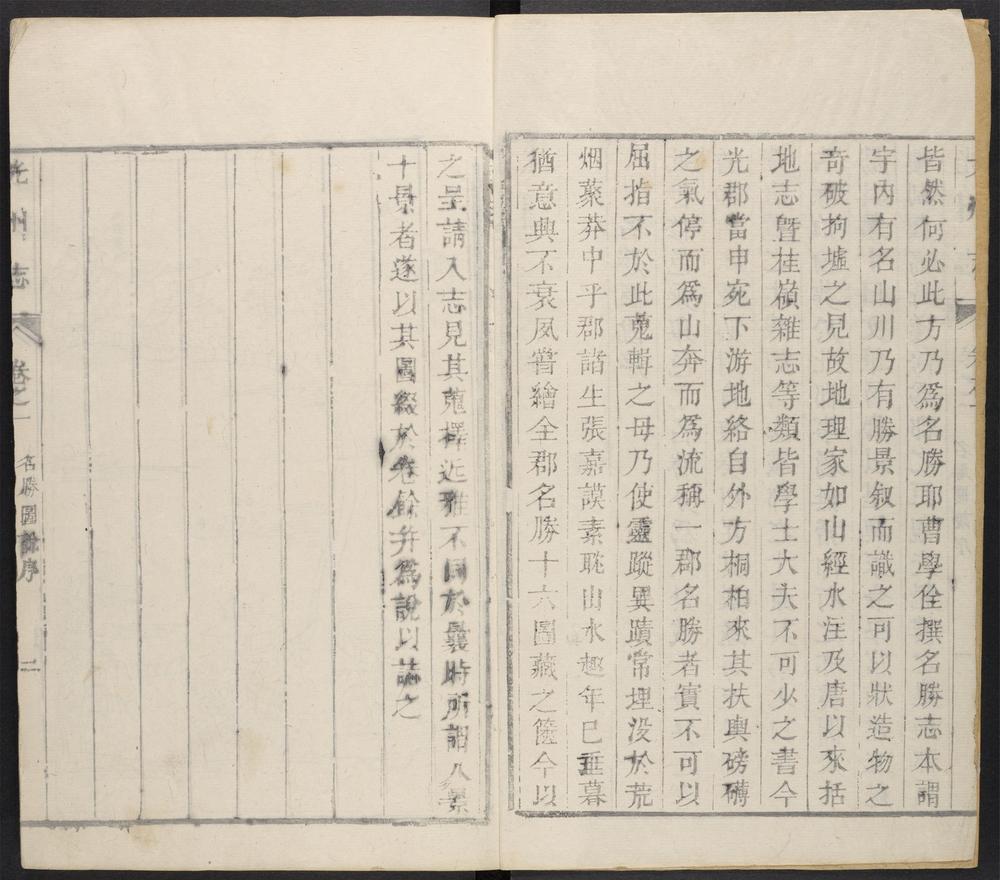 皆然何必此方乃爲名勝耶曹學佺撰名勝志本謂
宇內有名山川乃有勝景叙而識之可以狀造物之
奇破拘墟之見故地理家如山經水注及唐以來括
地志暨桂嶺雜志等類皆學士大夫不可少之書今
光郡當申宛下游地絡自外方桐柏來其扶輿磅礴
之氣停而爲山奔而爲流稱一郡名勝者實不可以
屈指不於此蒐輯之毋乃使靈蹤異蹟常埋没於荒
烟蔓莽中乎郡諸生張嘉謨素耽山水趣年已垂暮
猶意興不衰夙嘗繪全郡名勝十六圖藏之篋今以
之呈請入志見其蒐擇近雅不同於曩時所謂八景
十景者遂以其圖綴於卷餘并爲說以誌之
光州志
卷之一
名勝圖
序
二